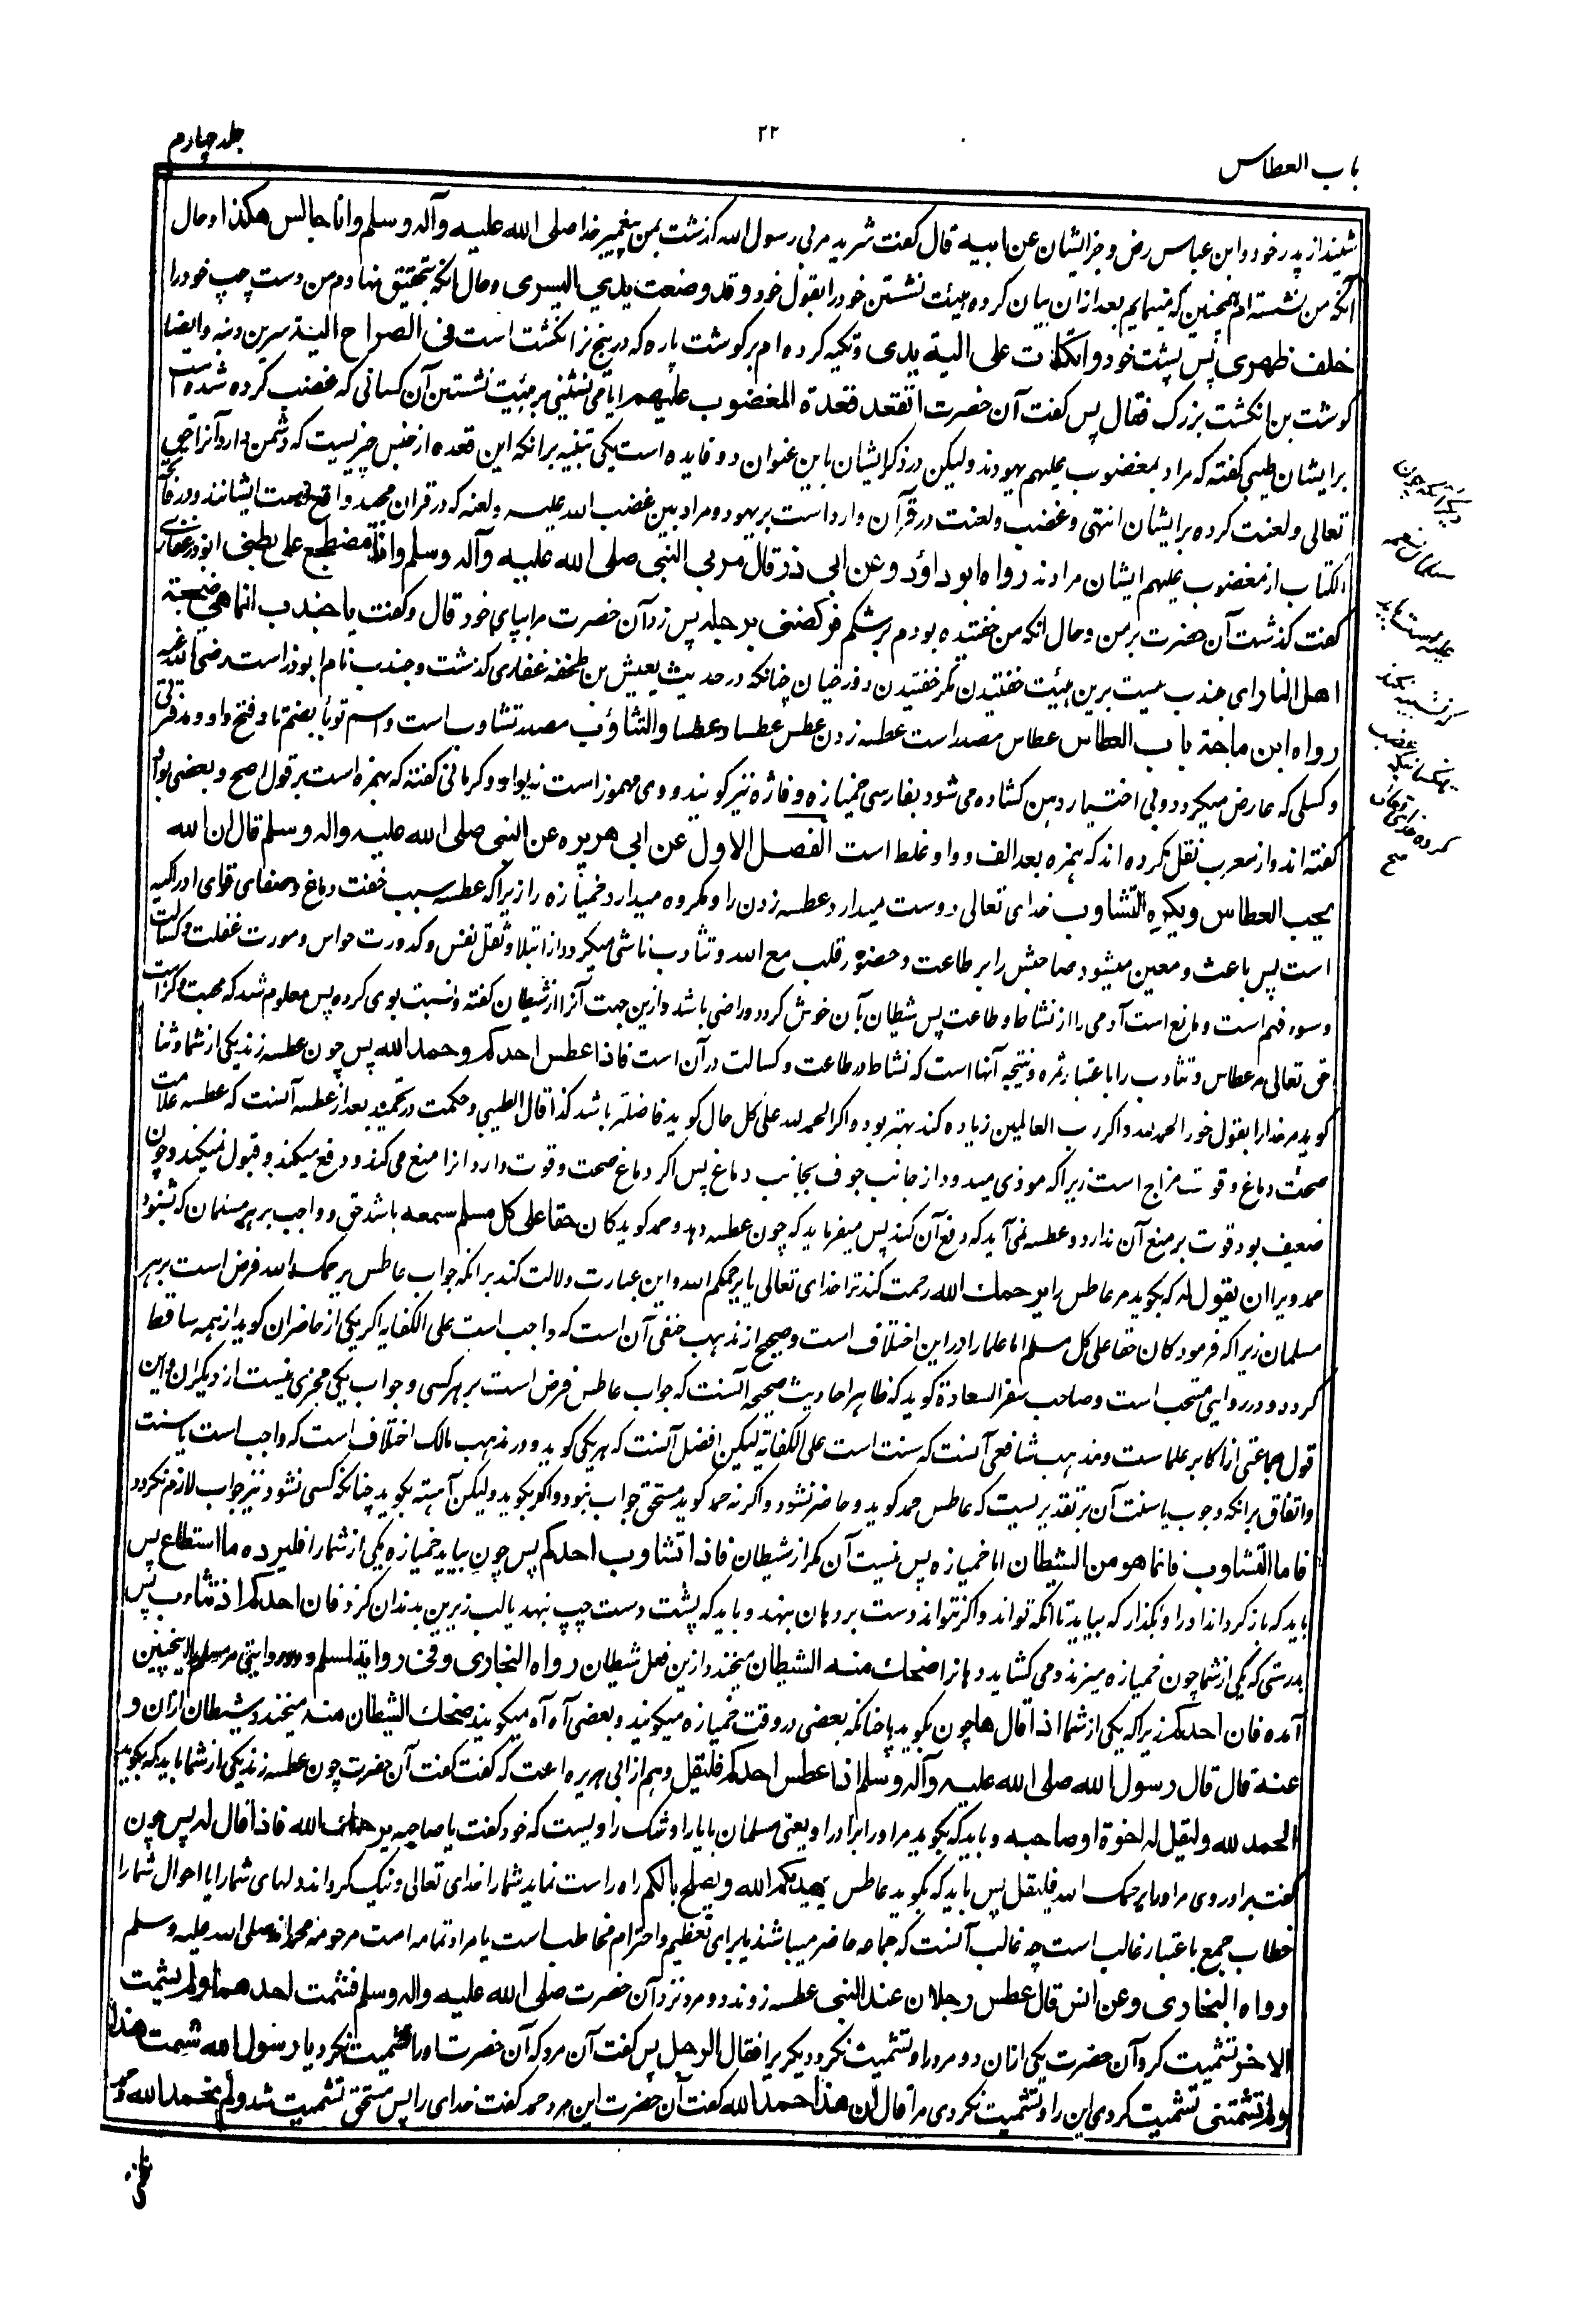 باب العطاس
۲۲
جلد چهارم
شنید از پدر خود و ابن عباس رض و جز ایشان عن ابیه قال گفت شرید مر بی رسول الله گذشت بمن پیغمبر خدا صلی الله علیه وآله وسلم وانا جالس هکذا و حال
آنکه من نشسته ام همچنین که مینمایم بعد ازان بیان کرده هیئت نشستن خود را بقول خود وقد وضعت یدی الیسری و حال آنکه بتحقیق نهادم من دست چپ خود را
خلف ظهری پس پشت خود واتکأت علی الیة یدی و تکیه کرده ام بر گوشت پاره که در بیخ نر انگشت است فی الصراح الیة سرین و دنبه و ایضا
گوشت بن انگشت بزرک فقال پس گفت آن حضرت اتقعد قعدة المغضوب علیهم آیا می نشینی بر هیئت نشستن آن کسانی که غضب کرده شده است
بر ایشان طیبی گفته که مراد بمغضوب علیهم یهودند ولیکن در ذکر ایشان باین عنوان دو فایده است یکی تنبیه بر آنکه این قعده از جنس چیزیست که دشمن دارد آنرا حق
تعالی و لعنت کرده بر ایشان انتهی و غضب و لعنت در قرآن وارد است بر یهود و مراد بمن غضب الله علیه ولعنه که در قرآن مجید واقع است ایشانند و در فاتحة
الکتاب از مغضوب علیهم ایشان مرادند رواه ابو داؤد وعن ابی ذر قال مر بی النبی صلی الله علیه وآله وسلم وانا مضطجع علی بطنی ابوذر غفاری
گفت گذشت آن حضرت بر من و حال آنکه من خفتیده بودم بر شکم فرکضنی برجله پس زد آن حضرت مرا بپای خود قال وگفت یا جندب انما هی ضجعة
اهل النار ای جندب نیست برین هیئت خفتیدن مگر خفتیدن دوزخیان چنانکه در حدیث یعیش بن طخفه غفاری گذشت و جندب نام ابوذر است رضی الله عنه
رواه ابن ماجة باب العطاس عطاس مصدر است عطسه زدن عطس عطسا و عطسا والتثاؤب مصدر تثاوب است و اسم ثوبا بضم تا و فتح واو و مد فترتی
و کسلی که عارض میگردد و بی اختیار دهن کشاده می شود بفارسی خمیازه و فاژه نیز گویند و وی مهموز است نه بواو و کرمانی گفته که بهمزه است بر قول اصح و بعضی بواو
گفته اند و از معرب نقل کرده اند که همزه بعد الف و واو غلط است الفصل الاول عن ابی هریره عن النبی صلی الله علیه واله وسلم قال ان الله
یحب العطاس ویکره التثاوب خدای تعالی دوست میدارد عطسه زدن را و مکروه میدارد خمیازه را زیرا که عطسه سبب خفت دماغ و صفای قوای ادراکیه
است پس باعث و معین میشود صاحبش را بر طاعت و حضور قلب مع الله و تثاوب ناشی میگردد از امتلا و ثقل نفس و کدورت حواس و مورث غفلت و کسالت
و سوء فهم است و مانع است آدمی را از نشاط و طاعت پس شیطان بآن خوش گردد و راضی باشد و ازین جهت آنرا از شیطان گفته و نسبت بوی کرده پس معلوم شد که محبت و کراهت
حق تعالی مر عطاس و تثاوب را باعتبار ثمره و نتیجه آنها است که نشاط در طاعت و کسالت در آن است فاذا عطس احدکم وحمد الله پس چون عطسه زند یکی از شما و ثنا
گوید مر خدا را بقول خود الحمد لله و اگر رب العالمین زیاده کند بهتر بود و اگر الحمد لله علی کل حال گوید فاضلتر باشد کذا قال الطیبی و حکمت در تحمید بعد از عطسه آنست که عطسه علامت
صحت دماغ و قوت مزاج است زیرا که موذی میرود از جانب جوف بجانب دماغ پس اگر دماغ صحت و قوت دارد آنرا منع می کند و دفع میکند و قبول نمیکند و چون
ضعیف بود قوت بر منع آن ندارد و عطسه نمی آید که دفع آن کند پس میفرماید که چون عطسه دهد و حمد گوید کان حقا علی کل مسلم سمعه باشد حق و واجب بر هر مسلمان که شنود
حمد ویرا ان یقول له که بگوید مر عاطس را یرحمك الله رحمت کند ترا خدای تعالی یا یرحمکم الله و این عبارت دلالت کند بر آنکه جواب عاطس یرحمك الله فرض است بر هر
مسلمان زیرا که فرمود کان حقا علی کل مسلم اما علما را در این اختلاف است و صحیح از مذهب حنفی آن است که واجب است علی الکفایه اگر یکی از حاضران گوید از همه ساقط
گردد و در روایتی مستحب است و صاحب سفر السعادة گوید که ظاهر احادیث صحیحه آنست که جواب عاطس فرض است بر هر کسی و جواب یکی مجزی نیست از دیگران و این
قول جماعتی از اکابر علماست و مذهب شافعی آنست که سنت است علی الکفایة لیکن افضل آنست که هر یکی گوید و در مذهب مالک اختلاف است که واجب است یا سنت
و اتفاق بر آنکه وجوب یا سنت آن بر تقدیریست که عاطس حمد گوید و حاضر نشود و اگر نه حمد گوید مستحق جواب نبود و اگر بگوید ولیکن آهسته بگوید چنانکه کسی نشنود نیز جواب لازم نگردد
فاما التثاوب فانما هو من الشیطان اما خمیازه پس نیست آن مگر از شیطان فاذا تثاوب احدکم پس چون بیاید خمیازه یکی از شما را فلیرده ما استطاع پس
باید که باز گرداند او را و نگذارد که بیاید تا آنکه تواند و اگر نتواند دست بر دهان بنهد و باید که پشت دست چپ بنهد یا لب زیرین بدندان گزد فان احدکم اذا تثاءب پس
بدرستی که یکی از شما چون خمیازه میزند و می کشاید دهانرا ضحك منه الشیطان میخندد ازین فعل شیطان رواه البخاری وفی روایة لمسلم و در روایتی مر مسلم را اینچنین
آمده فان احدکم زیرا که یکی از شما اذا قال ها چون گوید ها چنانکه بعضی در وقت خمیازه میگویند و بعضی آه آه میگویند ضحك الشیطان منه میخندد شیطان ازان و
عنه قال قال رسول الله صلی الله علیه وآله وسلم اذا عطس احدکم فلیقل وهم از ابی هریره است که گفت گفت آن حضرت چون عطسه زند یکی از شما باید که بگوید
الحمد لله ولیقل له اخوه او صاحبه و باید که بگوید مر او را برادر او یعنی مسلمان یا یار او شک راویست که خود گفت یا صاحبه یرحمك الله فاذا قال له پس چون
گفت برادر وی مر او را یرحمک الله فلیقل پس باید که بگوید عاطس یهدیکم الله ویصلح بالکم راه راست نماید شما را خدای تعالی و نیک گرداند دلهای شما را یا احوال شما را
خطاب جمع باعتبار غالب است چه غالب آنست که جماعه حاضر میباشند یا برای تعظیم و احترام مخاطب است یا مراد تمامه امت مرحومه محمد اند صلی الله علیه وسلم
رواه البخاری وعن انس قال عطس رجلان عند النبی عطسه زدند دو مرد نزد آن حضرت صلی الله علیه واله وسلم فشمت احدهما ولم یشمت
الاخر تشمیت کرد آن حضرت یکی ازان دو مرد را و تشمیت نکرد دیگر یرا فقال الرجل پس گفت آن مرد که آن حضرت او را تشمیت نکرد یا رسول الله شمت هذا
ولم تشمتنی تشمیت کردی این را و تشمیت نکردی مرا قال ان هذا حمد الله گفت آن حضرت این مرد حمد گفت خدای را پس مستحق تشمیت شد ولم تحمد الله وتو
دیگر آنکه چون
مسلمان نعمه
علیه است باید
که تشبیه نکند
بکسانیکه غضب
کرده خدای تعالی